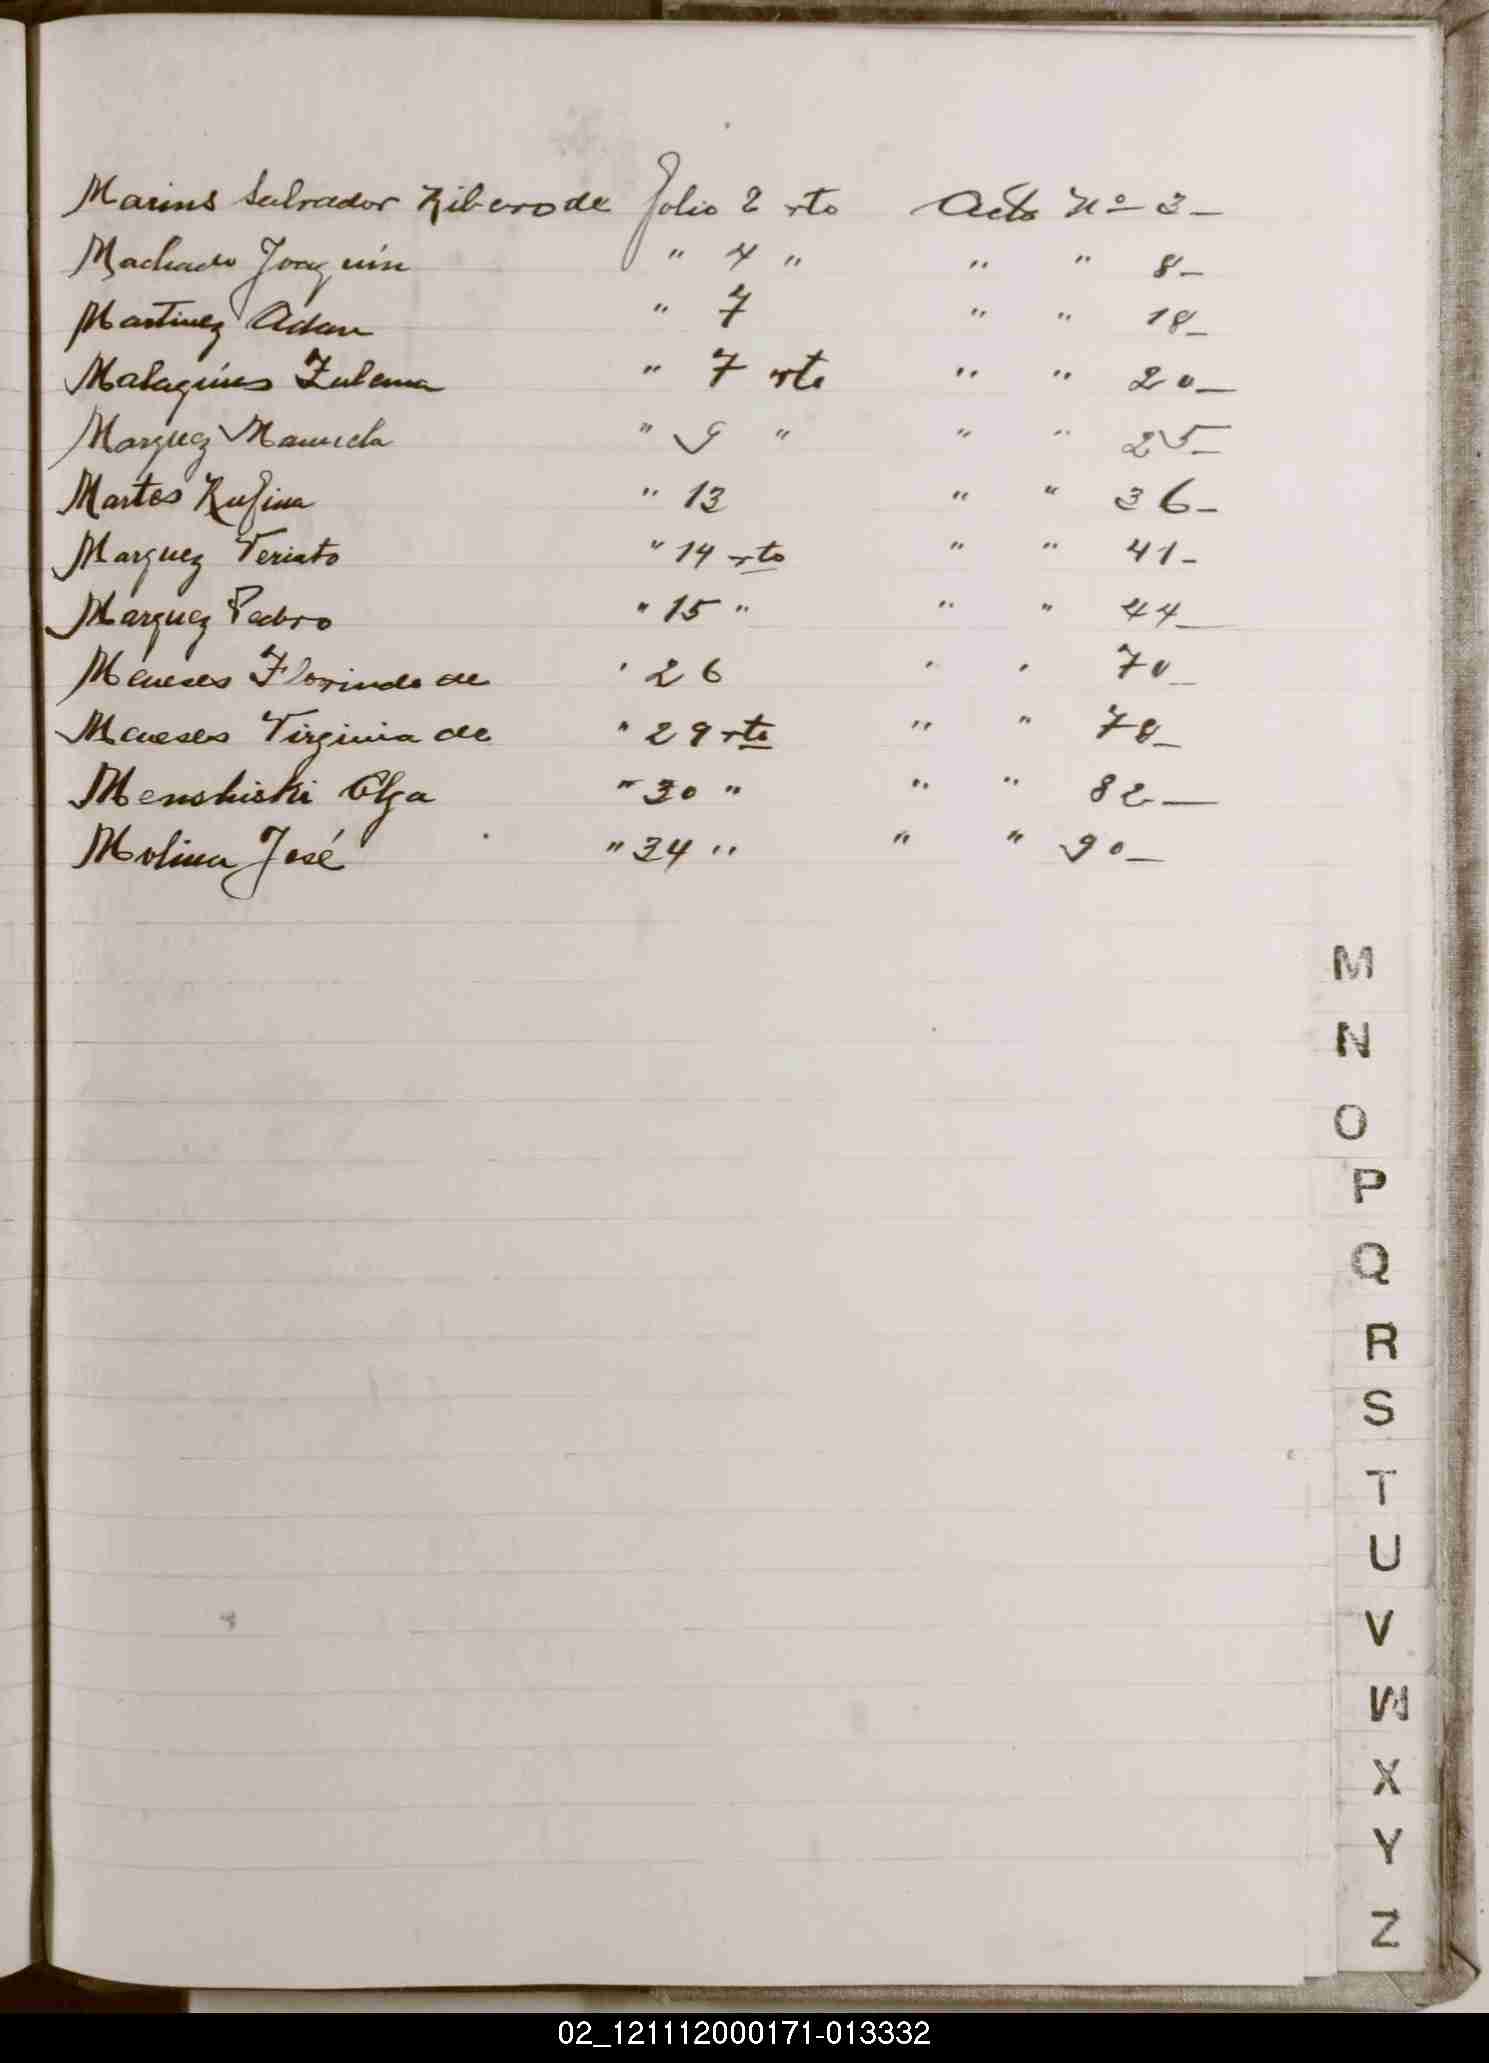 Marins Salvador Ribero de folio 2 vto Acta Nº 3_
Machado Joaquin " 4 " " " 8_
Martinez Adan " 7 " " 18_
Zulema " 7 vto " " 20_
Marquez Manuela " 9 " " " 25_
Martos Rufina " 13 " " 36_
Marquez " 14 vto " " 41_
Marquez Pedro " 15 " " " 44_
Meneses Florinda de " 26 " " 70_
Meneses Virginia de " 29 vto " " 78_
Menshiski Olga " 30 " " " 82_
Molina José " 34 " " " 90_
M
N
O
P
Q
R
S
T
U
V
W
X
Y
Z
02_121112000171-013332